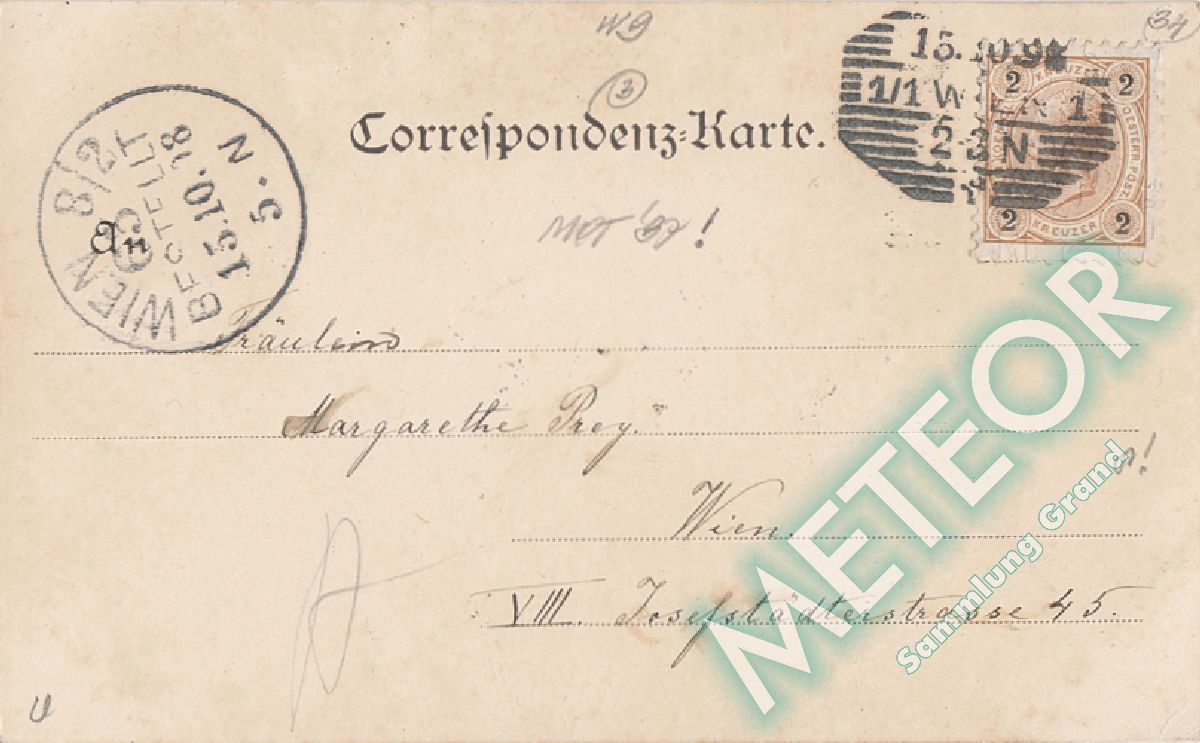 34
3
Correspondenz-Karte.
15.10.98
1/1 WIEN 1
2-3N
2 KREUZER 2
OESTERR. POST.
2 KREUZER 2
WIEN 8/2
65
BESTELLT
15.10.98
5.N
An
Fräulein
Margarethe Prey.
Wien.
VIII. Josefstädterstrasse 45.
METEOR
Sammlung Grand